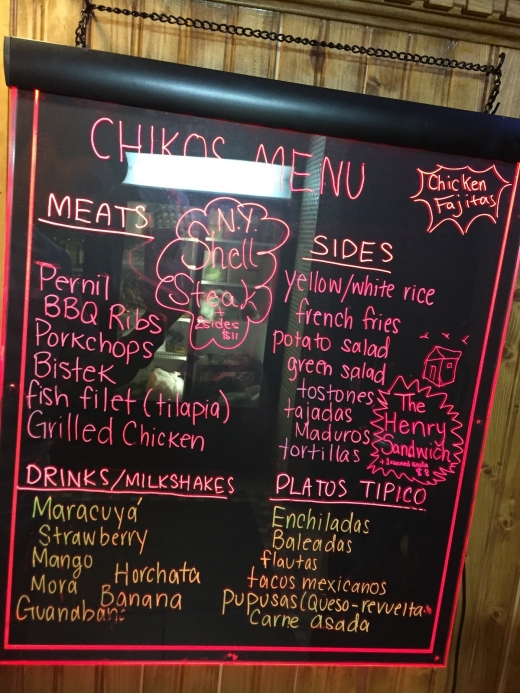 CHIKOS MENU
Chicken
Fajitas
MEATS
Pernil
BBQ Ribs
Porkchops
Bistek
fish filet (tilapia)
Grilled Chicken
N.Y.
Shell
Steak
+
2sides
$11
SIDES
yellow/white rice
french fries
potato salad
green salad
tostones
tajadas
Maduros
tortillas
The
Henry
Sandwich
$8
DRINKS/MILKSHAKES
Maracuyá
Strawberry
Mango
Horchata
Mora
Banana
Guanabana
PLATOS TIPICO
Enchiladas
Baleadas
flautas
tacos mexicanos
pupusas (Queso-revuelta
Carne asada